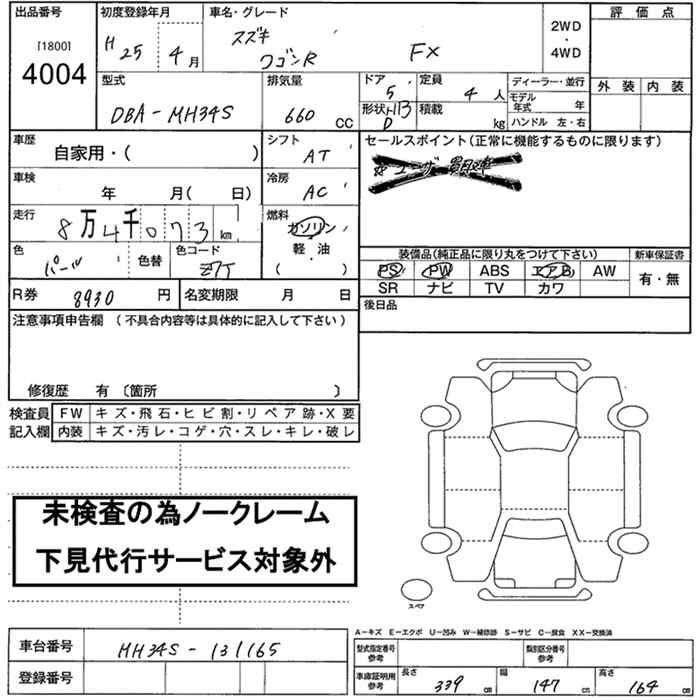 出品番号 初度登録年月 車名・グレード 評価点
[1800] H 25 4月 スズキ ワゴンR FX 2WD・4WD
4004
外装 内装
型式 排気量 ドア 定員 ディーラー・並行
DBA-MH34S 660 CC 5 4人 モデル年式 年
形状 積載 kg ハンドル 左・右
D
車歴 シフト セールスポイント(正常に機能するものに限ります)
自家用・( ) AT
車検 冷房
年 月( 日) AC
走行 燃料
8万4千073km ガソリン・軽・油 ( )
色 色替 色コード
パール
装備品(純正品に限り丸をつけて下さい) 新車保証書
PS PW ABS エアB AW 有・無
SR ナビ TV カワ
R券 8930円 名変期限 月 日
後日品
注意事項申告欄 (不具合内容等は具体的に記入して下さい)
修復歴 有〔箇所 〕
検査員 FW キズ・飛石・ヒビ割・リペア跡・X要
記入欄 内装 キズ・汚レ・コゲ・穴・スレ・キレ・破レ
未検査の為ノークレーム
下見代行サービス対象外
スペア
A-キズ E-エクボ U-凹み W-補修跡 S-サビ C-腐食 XX-交換済
車台番号 MH34S-131165
登録番号
型式指定番号 参考 類別区分番号 参考
車庫証明用 参考 長さ 339cm 幅 147cm 高さ 164cm